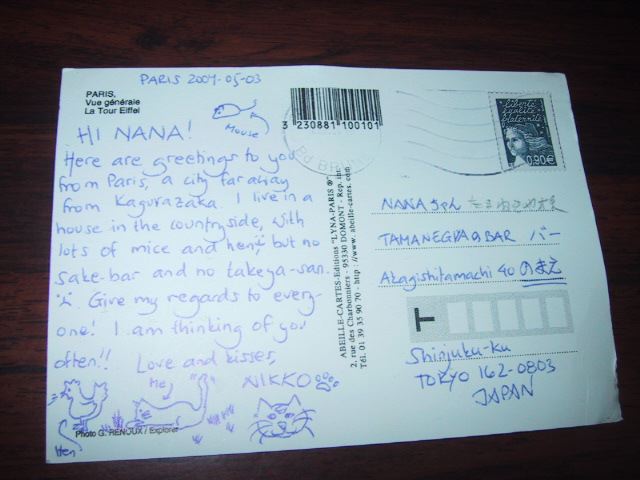 PARIS 2007-05-03
PARIS,
Vue générale
La Tour Eiffel
Mouse
HI NANA!
Here are greetings to you
from Paris, a city far away
from Kagurazaka. I live in a
house in the countryside, with
lots of mice and hens but no
sake-bar and no takeya-san.
Give my regards to every-
one! I am thinking of you
often!! Love and kisses,
Me
NIKKO
Hen
Photo G. RENOUX / Explorer
3 230881 100101
ABEILLE-CARTES-Editions "LYNA-PARIS ®"
2, rue des Charbonniers - 95330 DOMONT - Rep. int.
Tél. 01 39 35 90 70 - http://www.abeille-cartes.com
Bd BRUNE
liberté
égalité
fraternité
0,90€
NANAちゃん
TAMANEGIYAのBAR バー
Akagishitamachi 40 のまえ
T
Shinjuku-ku
TOKYO 162-0803
JAPAN